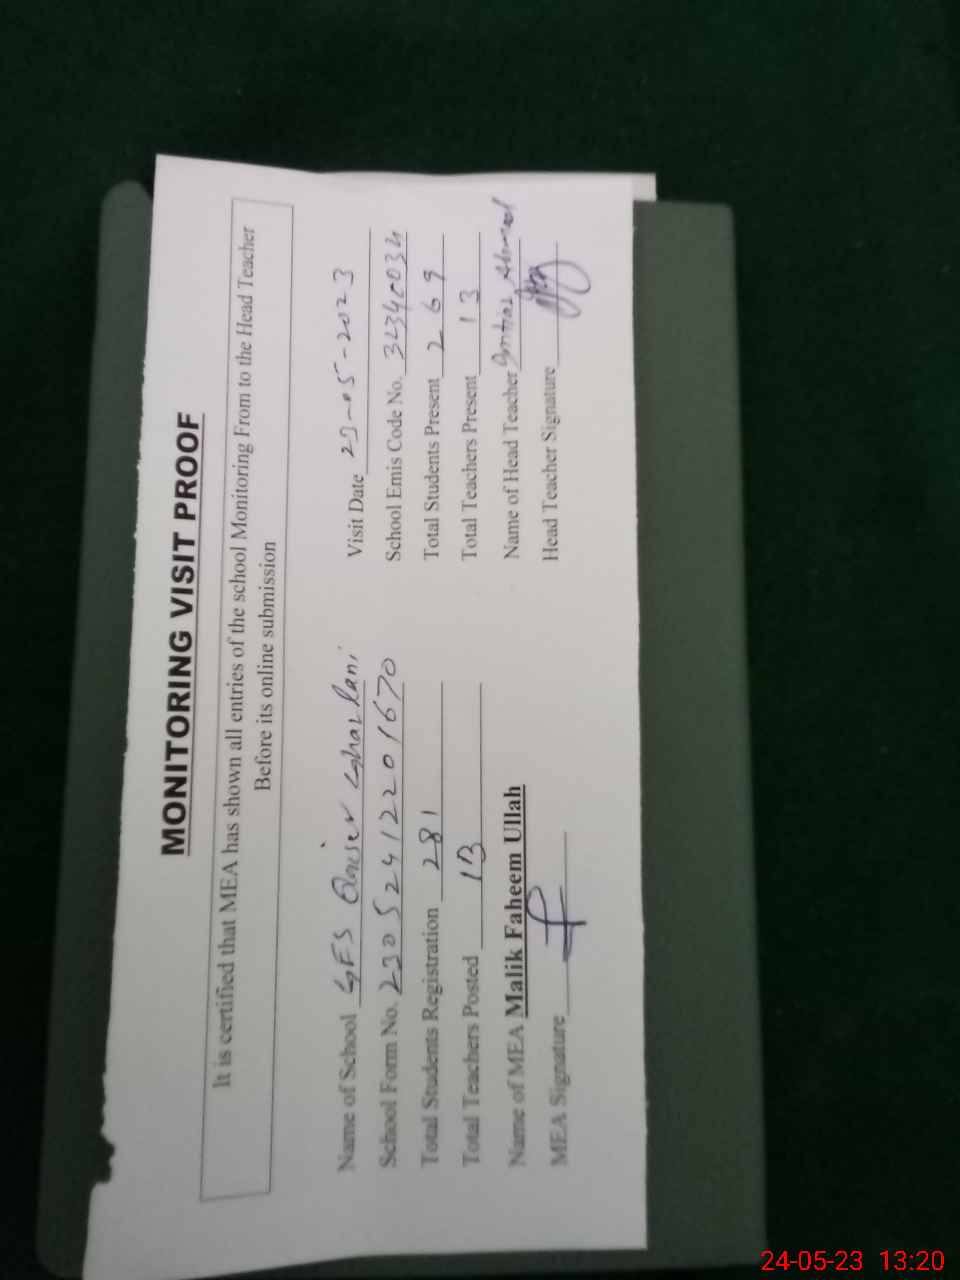 MONITORING VISIT PROOF
It is certified that MEA has shown all entries of the school Monitoring From to the Head Teacher
Before its online submission
Name of School GES
Visit Date 23-05-2023
School Form No. 23052412201670
School Emis Code No.
Total Students Registration 281
Total Students Present 269
Total Teachers Posted 13
Total Teachers Present 13
Name of MEA Malik Faheem Ullah
Name of Head Teacher Ahmad
MEA Signature
Head Teacher Signature
24-05-23 13:20